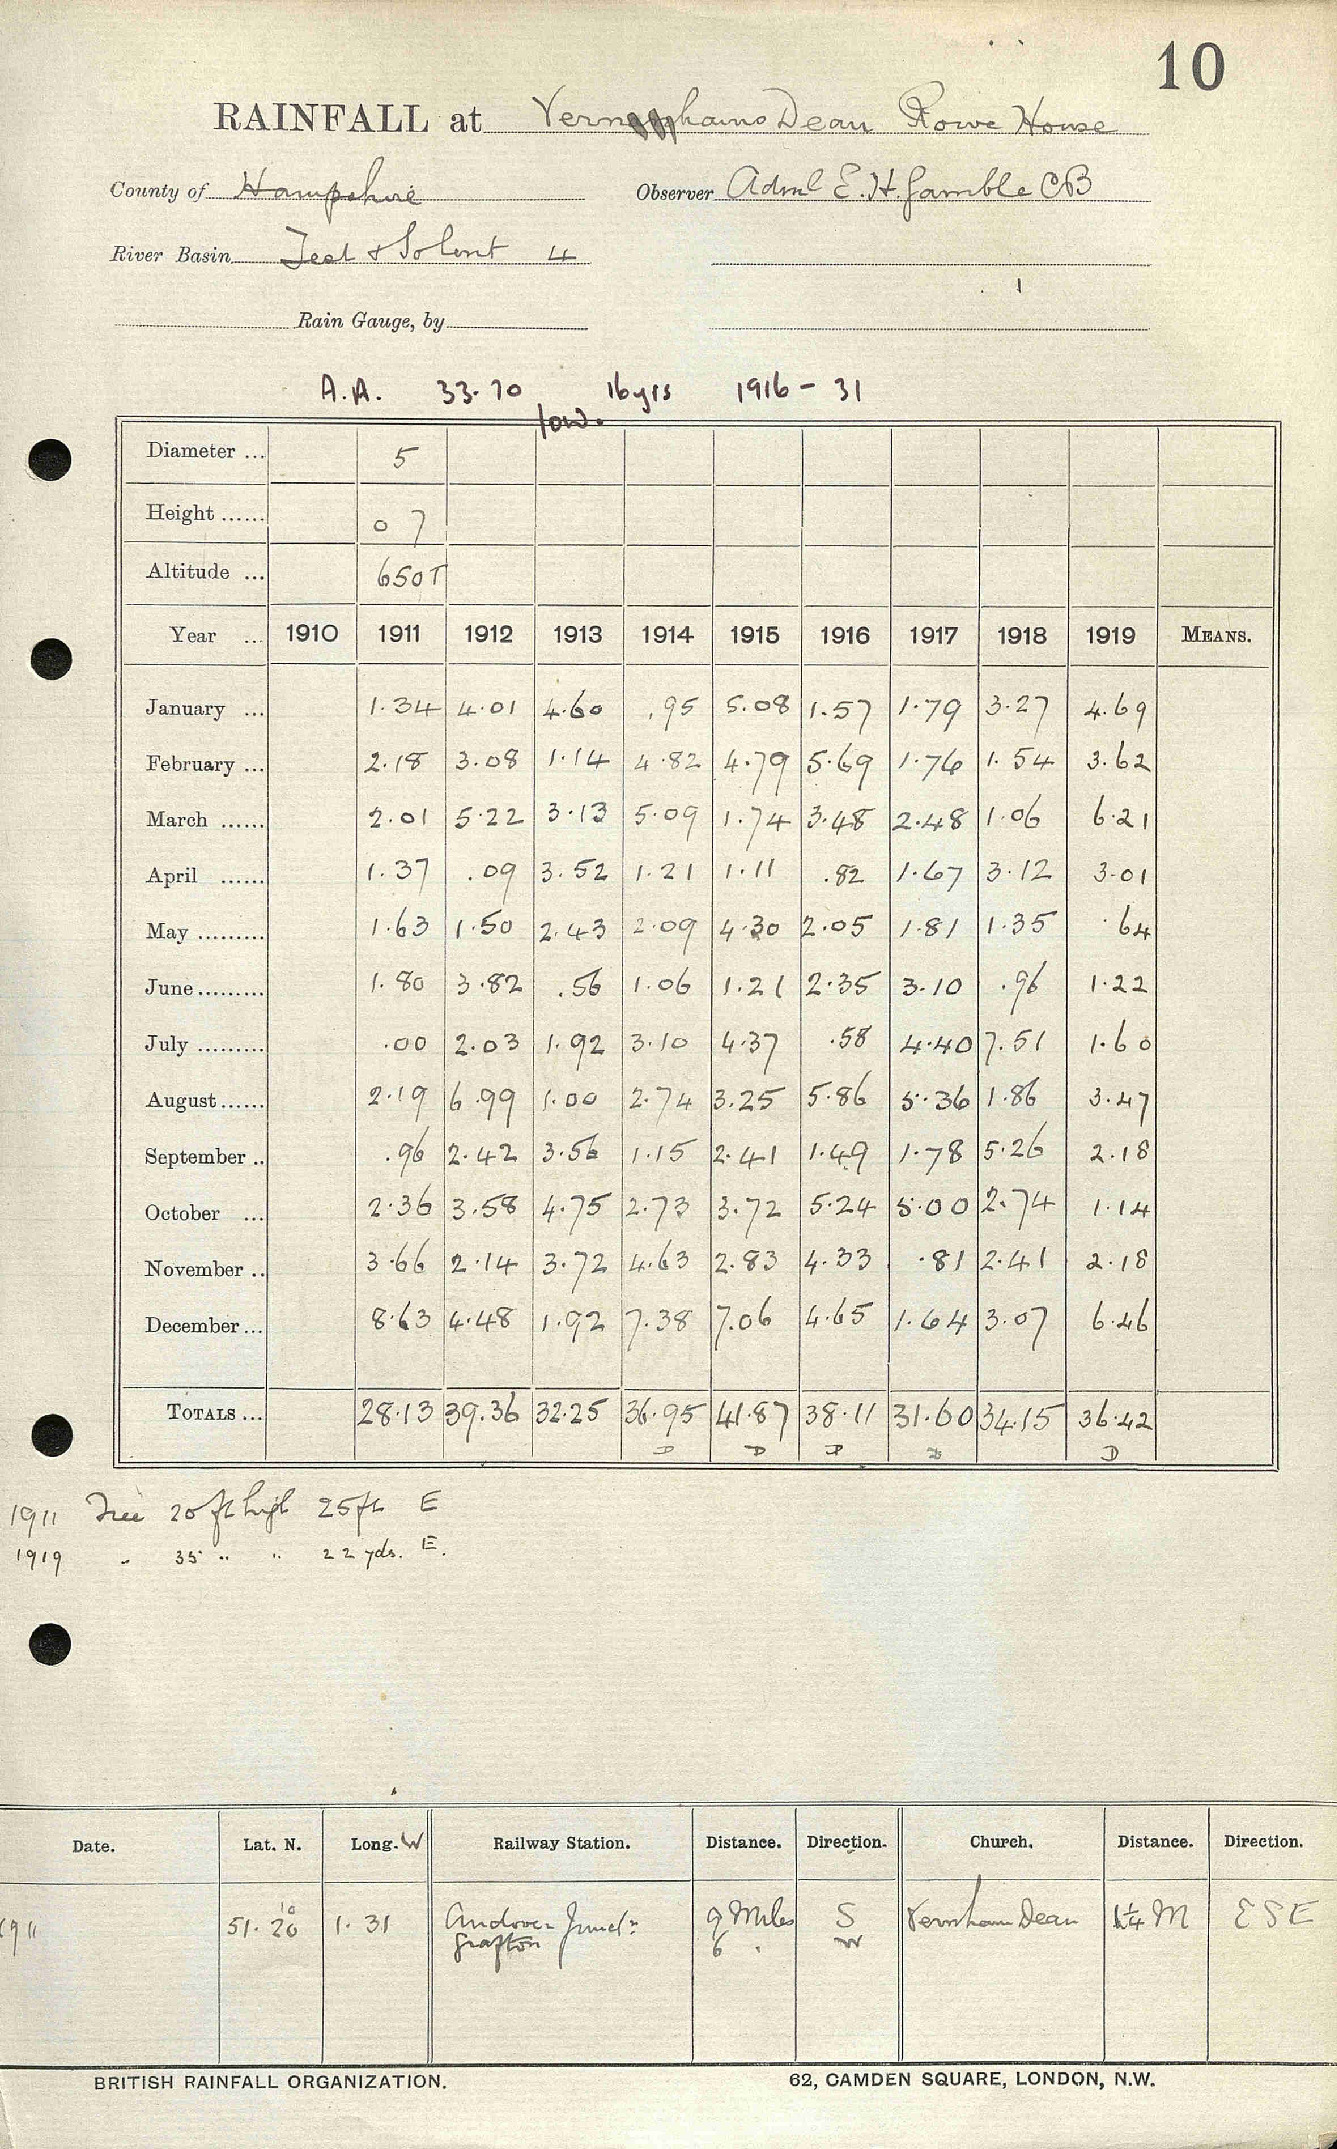 10
RAINFALL at Vernhams Dean Rowe House
County of Hampshire Observer Adml E. H. Gamble CB
River Basin Test & Solent 4
Rain Gauge, by
A.A. 33.70 16 yrs 1916 - 31
low.
Diameter ... 5
Height ...... 0 7
Altitude ... 650T
Year ... 1910 1911 1912 1913 1914 1915 1916 1917 1918 1919 MEANS.
January ... 1.34 4.01 4.60 .95 5.08 1.57 1.79 3.27 4.69
February ... 2.18 3.08 1.14 4.82 4.79 5.69 1.76 1.54 3.62
March ...... 2.01 5.22 3.13 5.09 1.74 3.48 2.48 1.06 6.21
April ...... 1.37 .09 3.52 1.21 1.11 .82 1.67 3.12 3.01
May ......... 1.63 1.50 2.43 2.09 4.30 2.05 1.81 1.35 .64
June ......... 1.80 3.82 .56 1.06 1.21 2.35 3.10 .96 1.22
July ......... .00 2.03 1.92 3.10 4.37 .58 4.40 7.51 1.60
August ...... 2.19 6.99 1.00 2.74 3.25 5.86 5.36 1.86 3.47
September .. .96 2.42 3.56 1.15 2.41 1.49 1.78 5.26 2.18
October ... 2.36 3.58 4.75 2.73 3.72 5.24 5.00 2.74 1.14
November .. 3.66 2.14 3.72 4.63 2.83 4.33 .81 2.41 2.18
December ... 8.63 4.48 1.92 7.38 7.06 4.65 1.64 3.07 6.46
TOTALS ... 28.13 39.36 32.25 36.95 41.87 38.11 31.60 34.15 36.42
D D D D D
1911 Tree 20 ft high 25 ft E
1919 " 35 " " 22 yds. E.
Date. Lat. N. Long. W Railway Station. Distance. Direction. Church. Distance. Direction.
1911 51.20 1.31 Andover Junctn 9 Miles S Vernham Dean 1¼ M ESE
Grafton 6 " W
BRITISH RAINFALL ORGANIZATION. 62, CAMDEN SQUARE, LONDON, N.W.